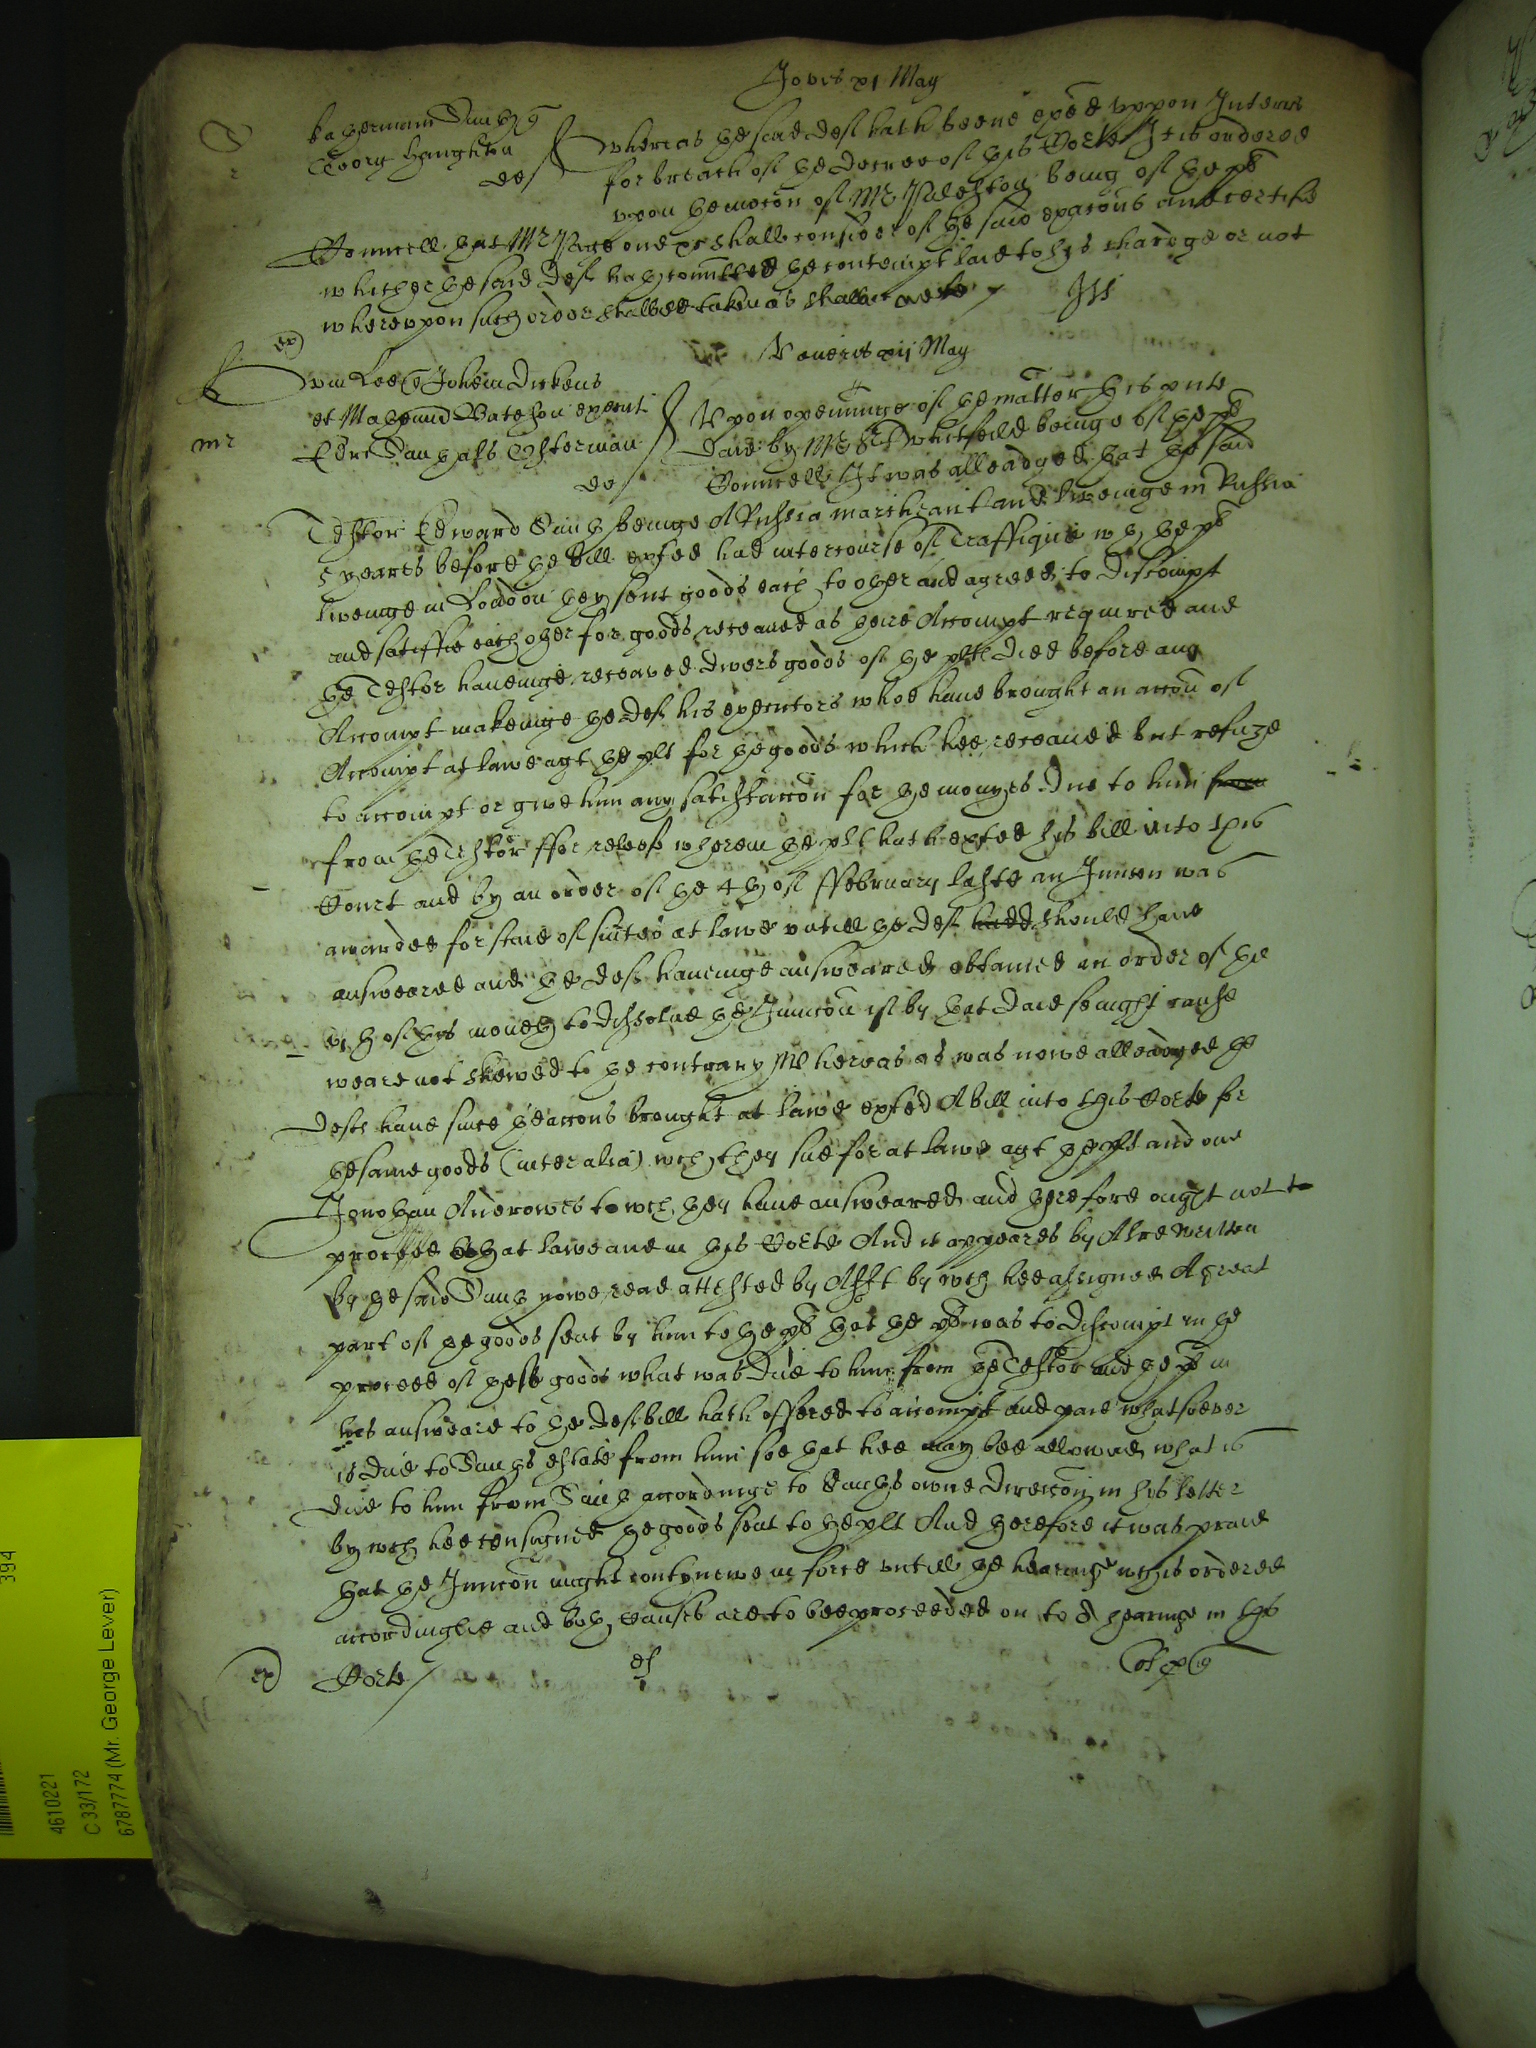 Jovis xj May
Katherinam Smyth
Georg Haughton
def
Whereas the said def hath beene exed uppon Interr
for breach of the decree of this Corte It is ordered
upon the mocon of Mr being of the plts
Councell that Mr Page one xx shall consider of the said exacons and certifie
whether the said def hath comitted the contempt laid to his chardge or not
whereupon such order shalbee taken as shalbe meete
ex
Veneris xij May
Wm Lee Johem Dickens
et Mathewe Bateson execut
Edri Smyth als Osterman
def
mr
Upon openinge of the matter this pnte
daie by Mr Whitfeild beinge of the plts
Councell It was alleadged that the said
Testor Edward Smyth beinge A Russia marchant and liveinge in Russia
5 yeares before the bill exhed had intercourse of Traffique wth the plt
liveinge in London they sent goods each to other and agreed to discompt
and satisffie each other for goods receaved as theire Accompt required and
the Testor haveinge receaved divers goods of the plts died before any
Accompt makeinge the def his executors whoe have brought an accon of
Accompt at lawe agt the plt for the goods which hee receaved but refuze
to accompt or give him any satisfaccon for the monyes due to him from
from the Testor ffor releof wherein the plt hath exhed his bill into this
Court and by an order of the 4th of ffebruary laste an Iniuccon was
awarded for staie of suites at lawe untill the def hadd should have
answeared and the def haveinge answeared obtained an order of the
th of this moneth to dissolve the Iniuccon if by that daie seaught cause
weare not shewed to the contrary Whereas as was nowe alleadged the
defts have since the accons brought at lawe exhed A bill into this Corte for
the same goods (inter alia) wch they sue for at lawe agt the plt and one
Jonathan Andrewes to wch they have answeared and therefore ought not to
proceed both at lawe and in this Corte And it appeares by A lre written
by the said Smyth nowe read attested by Afft by wch hee assigned A great
part of the goods sent by him to the plt that the plt was to discompt in the
proceed of these goods what was due to him from the Testor and the plt in
his answeare to the defts bill hath offered to accompt and paie whatsoever
is due to Smyths estate from him soe that hee may bee allowed what is
due to him from Smyth accordinge to Smyths owne direccon in his letter
by wch hee consigned the goods sent to the plt And therefore it was praied
that the Iniuccon might contynewe in force untill the hearinge wch is ordered
accordinglie and both causes are to bee proceeded on to A hearinge in this
ex
Corte
394
4610221
C 33/172
6787774 (Mr. George Lever)